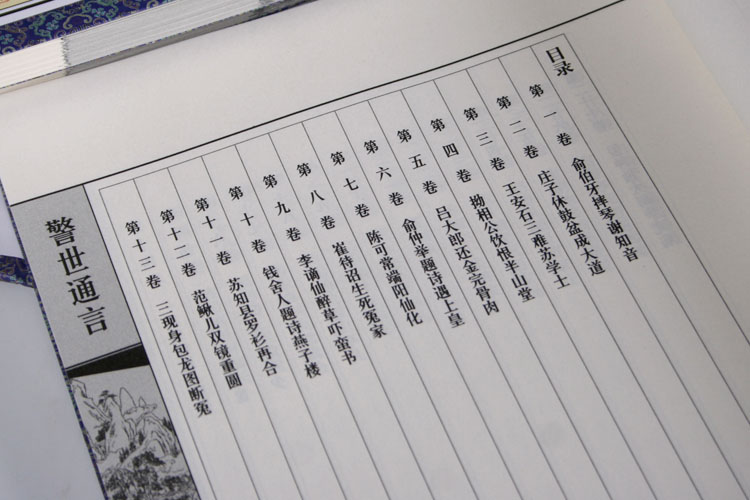 目录
第一卷 俞伯牙摔琴谢知音
第二卷 庄子休鼓盆成大道
第三卷 王安石三难苏学士
第四卷 拗相公饮恨半山堂
第五卷 吕大郎还金完骨肉
第六卷 俞仲举题诗遇上皇
第七卷 陈可常端阳仙化
第八卷 崔待诏生死冤家
第九卷 李谪仙醉草吓蛮书
第十卷 钱舍人题诗燕子楼
第十一卷 苏知县罗衫再合
第十二卷 范鳅儿双镜重圆
第十三卷 三现身包龙图断冤
警世通言